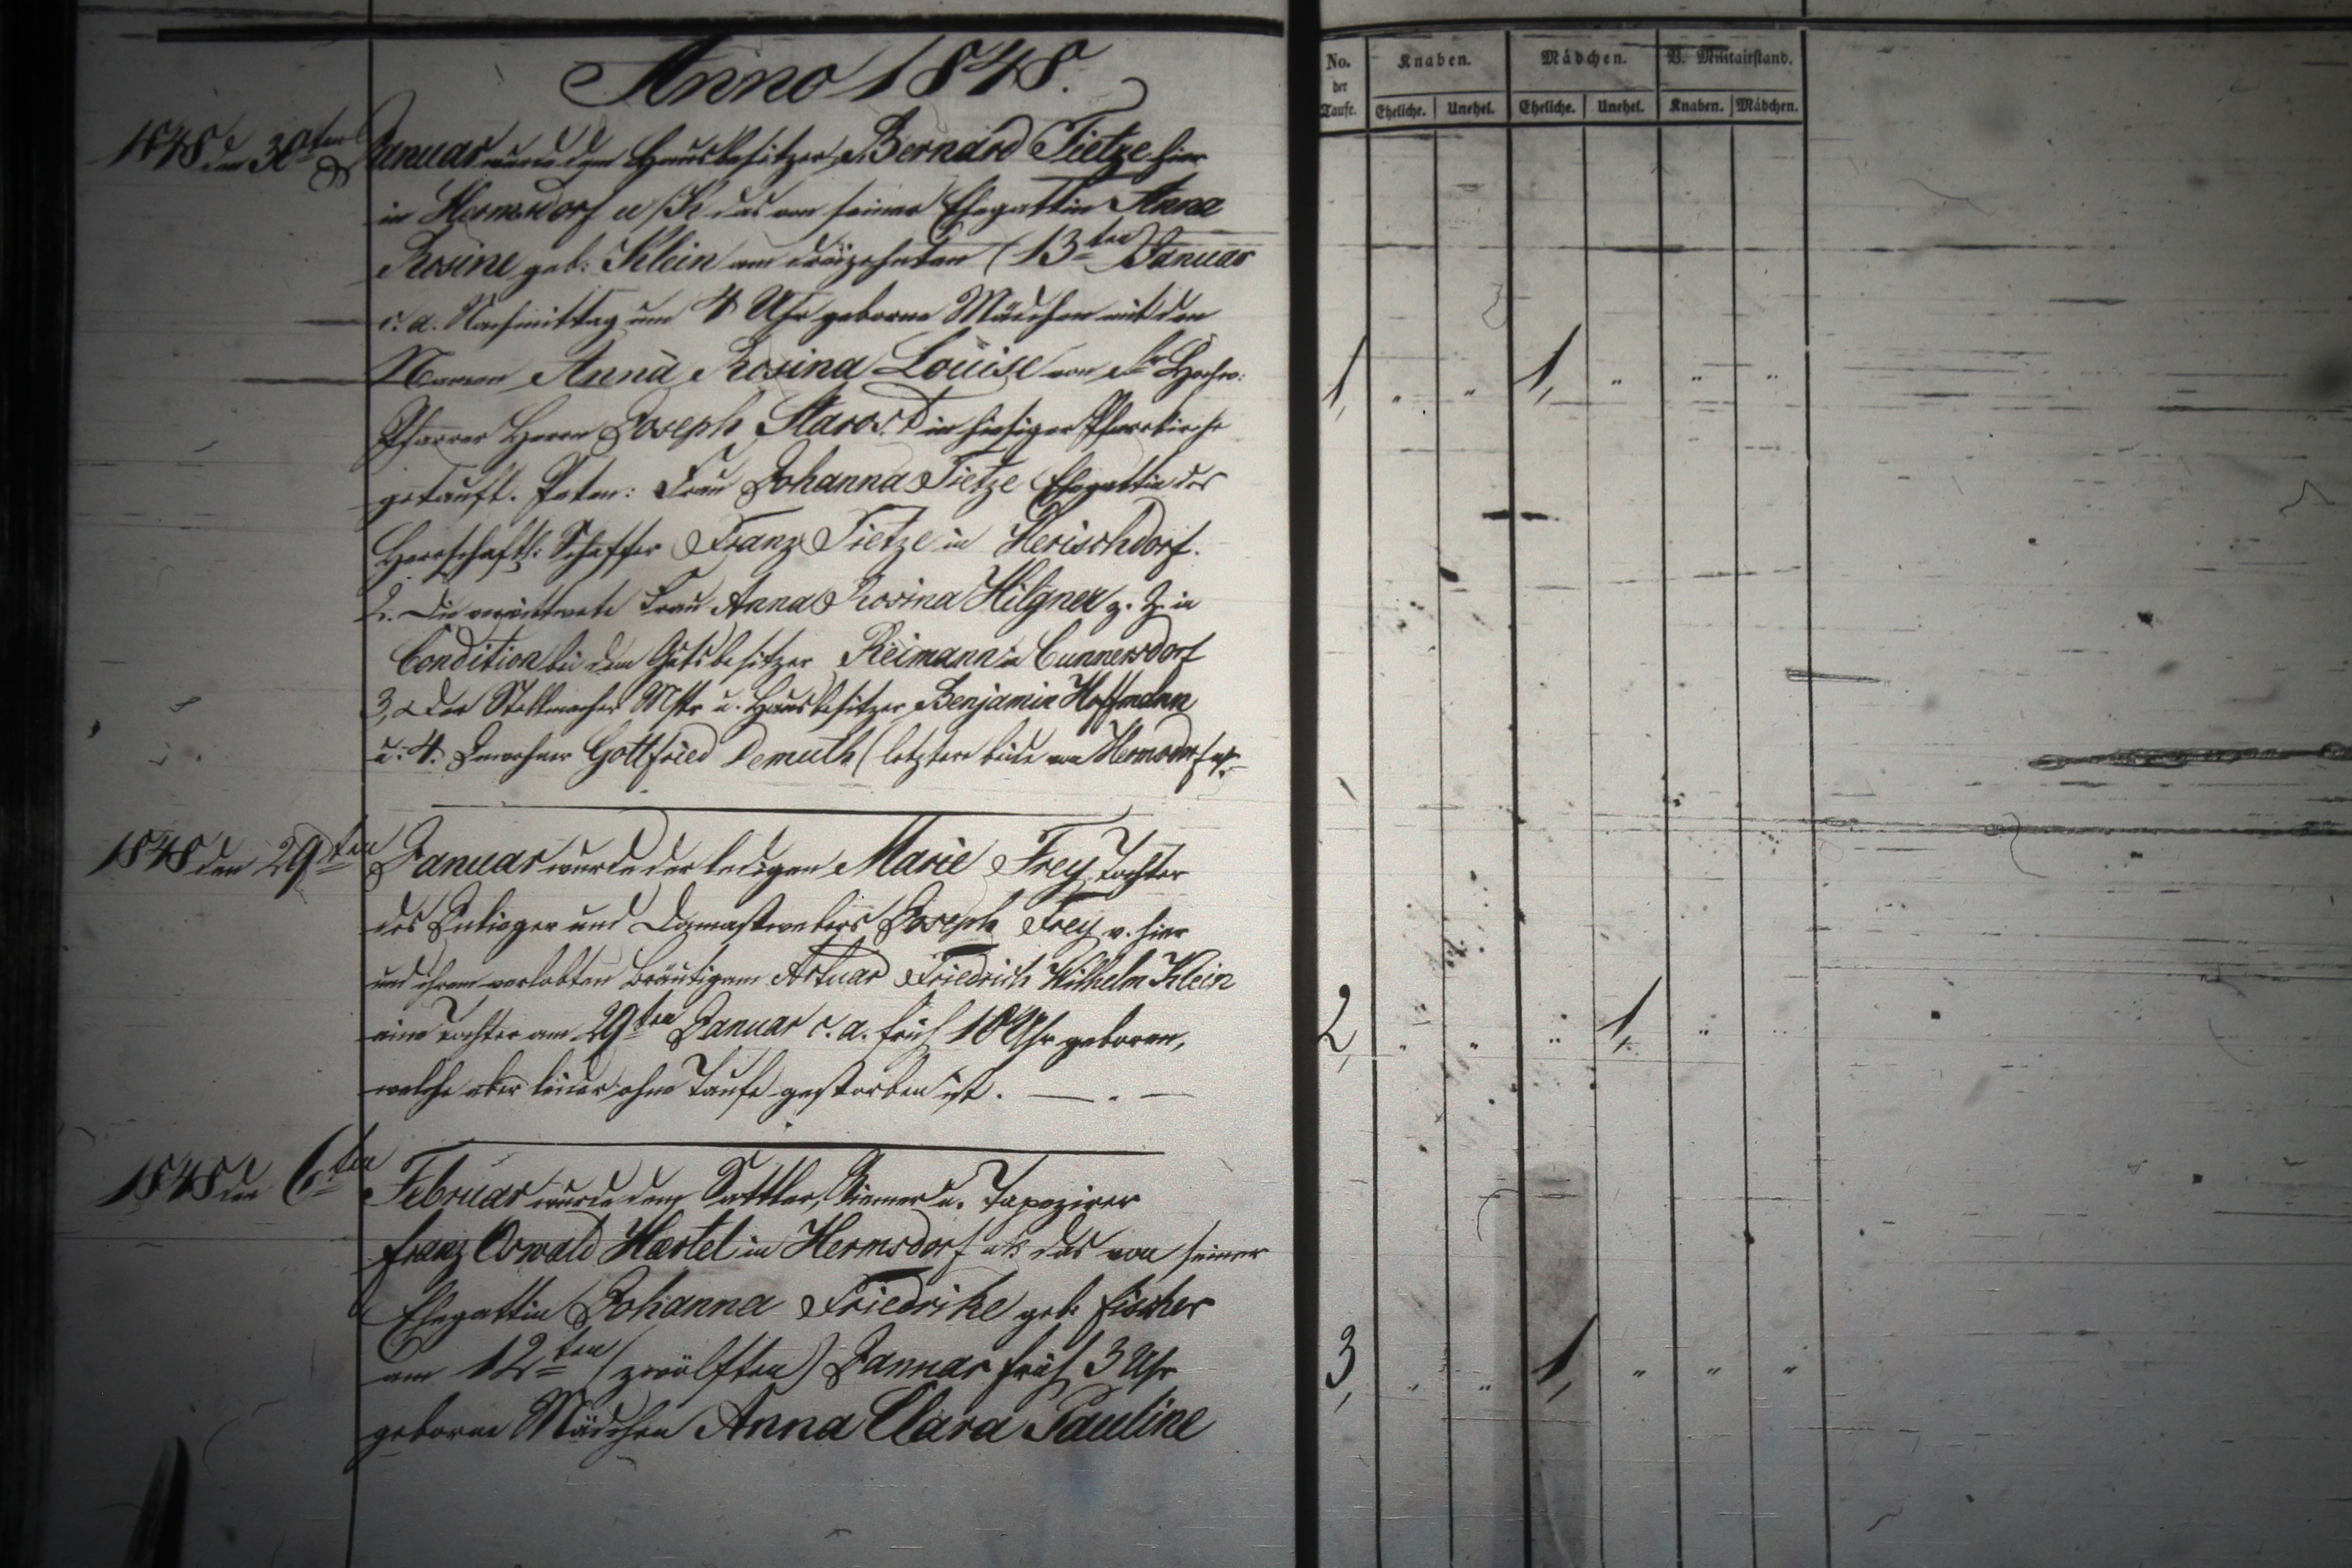 Anno 1848.
1848 den 30ten Januar wurde dem Hausbesitzer Bernard Tietze hier
in Hermsdorf u/K das von seiner Ehegattin Anna
Rosine geb: Klein am dreizehnten (13ten) Januar
c. a. Nachmittag um 4 Uhr geborne Mädchen mit den
Namen Anna Rosina Louise von Hochw:
Pfarrer Herrn Joseph Starost in hiesiger Pfarrkirche
getauft. Paten: Frau Johanna Tietze Ehegattin des
Herrschaftl: Schaffer Franz Tietze in Herischdorf.
2. Die verwittwete Frau Anna Rosina Hilgner z. Z. in
Condition bei dem Gutsbesitzer Reimann in Cunnersdorf
3, Der Stellmacher Mstr u. Hausbesitzer Benjamin Hoffmann
u. 4. Inwohner Gottfried Demuth (letztere beide von Hermsdorf u/K.
1848 den 29ten Januar wurde der ledigen Marie Frey Tochter
des Inlieger und Damastwebers Joseph Frey v. hier
und ihrem verlobten Bräutigam Actuar Friedrich Wilhelm Klein
eine Tochter am 29ten Januar c. a. früh 10 Uhr geboren,
welche aber leider ohne Taufe gestorben ist. — . —
1848 den 6ten Februar wurde dem Sattler, Riemer u. Tapezirer
Franz Oswald Haertel in Hermsdorf u/K das von seiner
Ehegattin Johanna Friedrike geb: Fischer
am 12ten (zwölften) Januar früh 3 Uhr
geborne Mädchen Anna Clara Pauline
No. der Taufe. Knaben. Mädchen. B. Militairstand.
Eheliche. Unehel. Eheliche. Unehel. Knaben. Mädchen.
1, " " 1, " " "
2, " " " 1, " "
3, " " 1, " " "